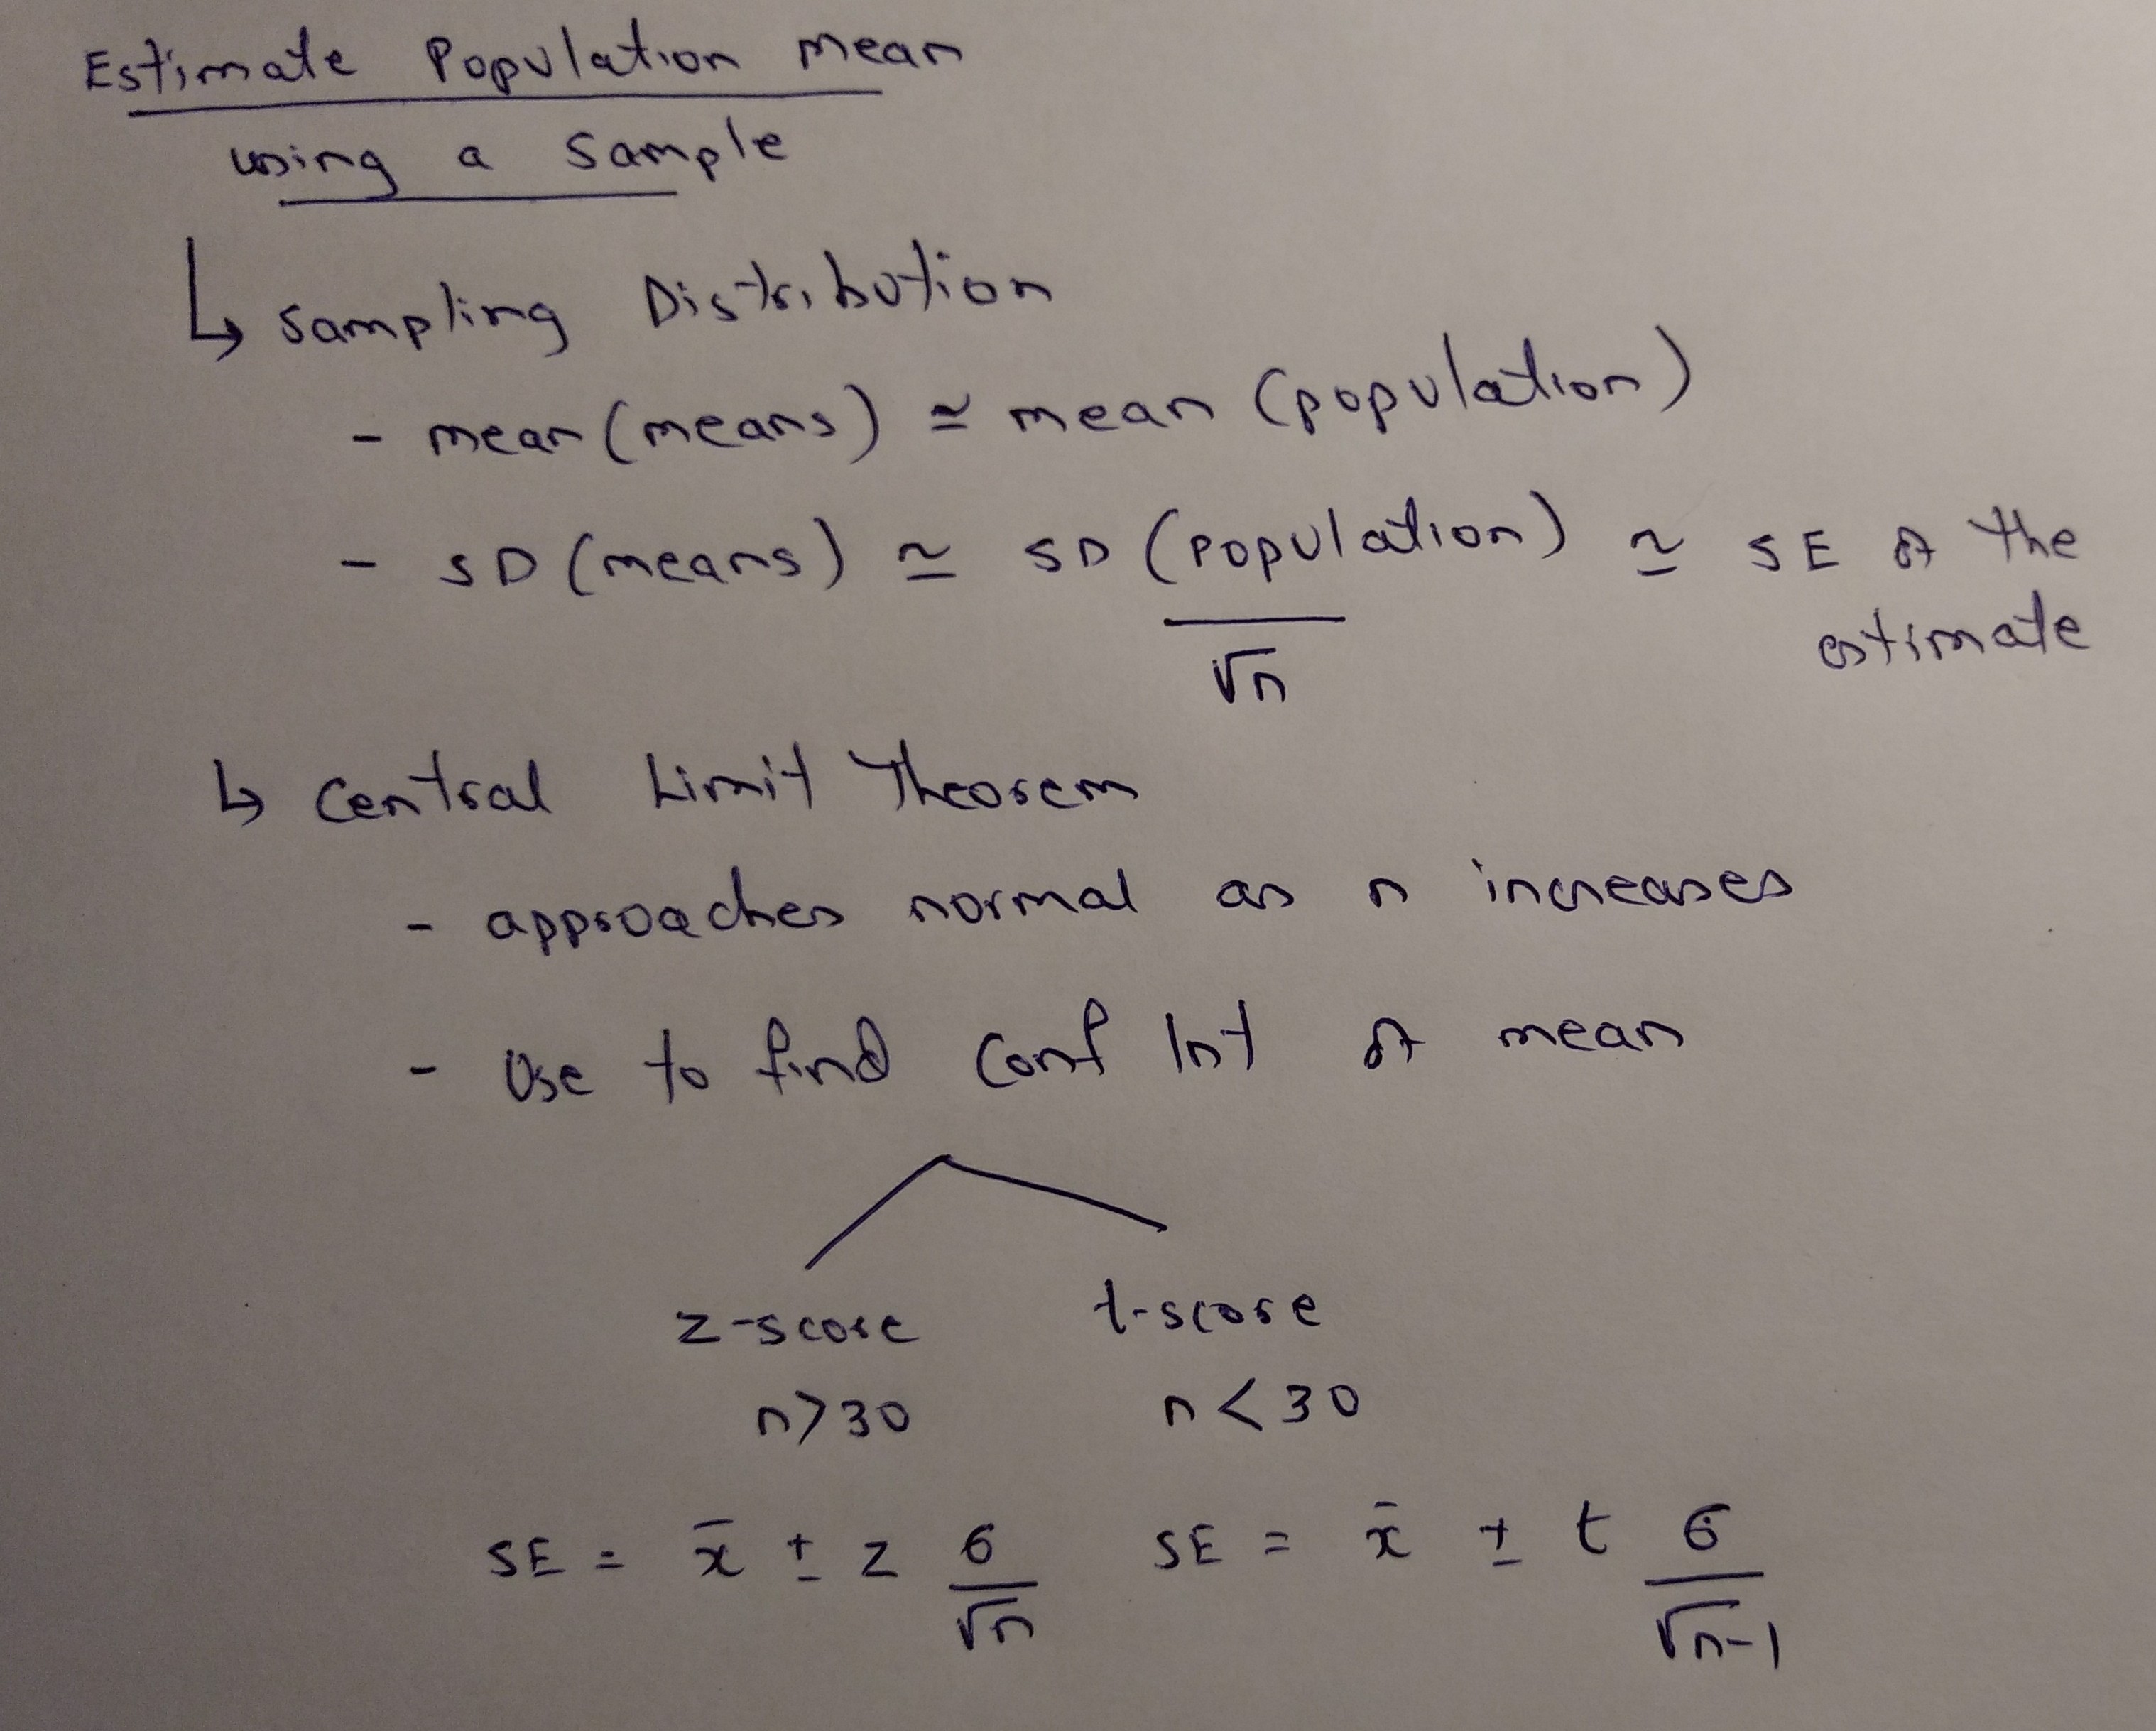 Estimate Population mean
using a sample
↳ Sampling Distribution
- mean (means) ≃ mean (population)
- SD (means) ≃ SD (population) / √n ≃ SE of the
estimate
↳ Central Limit Theorem
- approaches normal as n increases
- Use to find Conf Int of mean
z-score t-score
n>30 n<30
SE = x̄ ± z σ/√n SE = x̄ ± t σ/√n-1